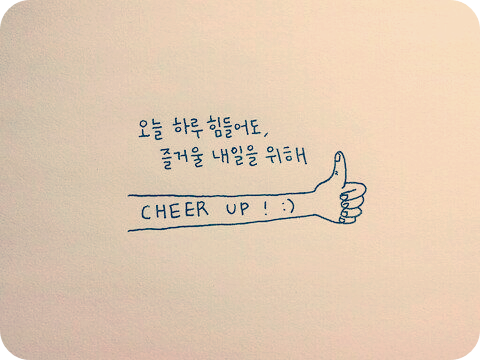 오늘 하루 힘들어도,
즐거울 내일을 위해
CHEER UP ! :)